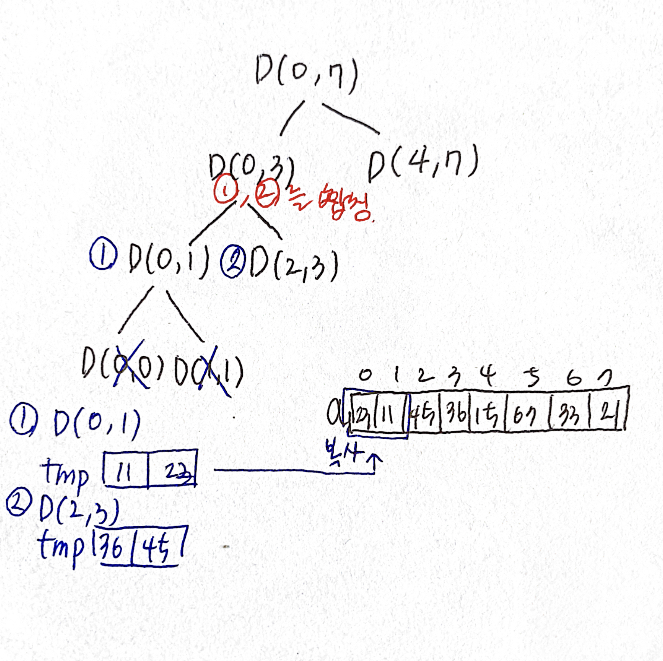 D(0,7)
D(0,3) D(4,7)
①,②는 합침.
① D(0,1) ② D(2,3)
D(0,0) D(1,1)
0 1 2 3 4 5 6 7
a 23 11 45 36 15 67 33 21
복사
① D(0,1)
tmp 11 23
② D(2,3)
tmp 36 45